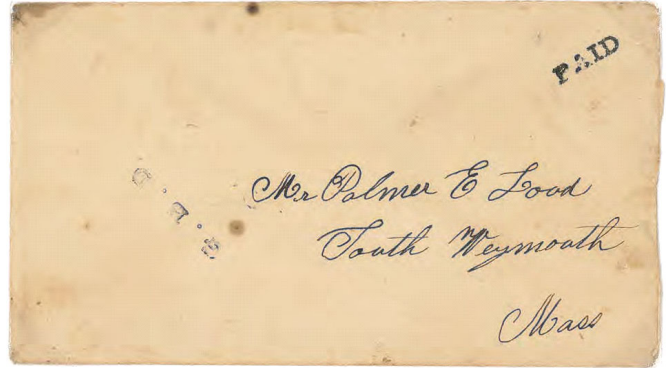 PAID
Mr Palmer E Loud
South Weymouth
Mass